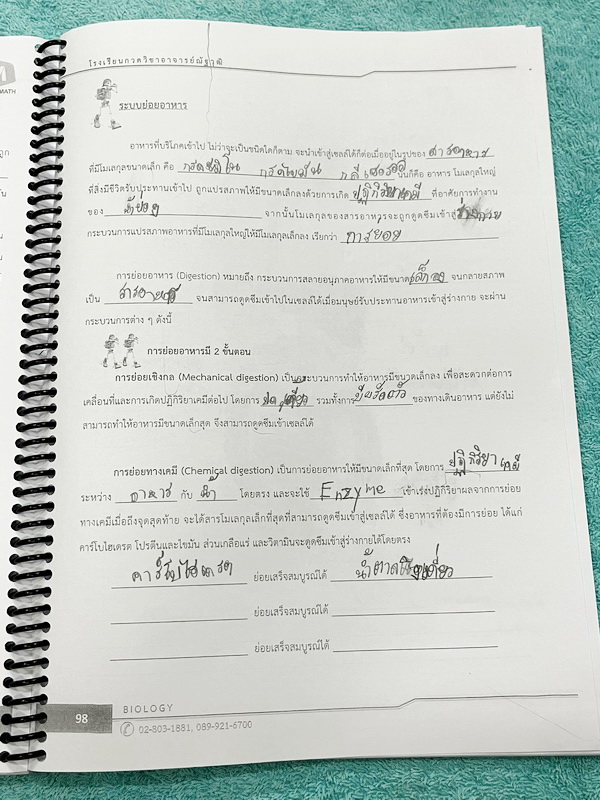 โรงเรียนกวดวิชาอาจารย์ณัฐวุฒิ
MATH
ระบบย่อยอาหาร
อาหารที่บริโภคเข้าไป ไม่ว่าจะเป็นชนิดใดก็ตาม จะนำเข้าสู่เซลล์ได้ก็ต่อเมื่ออยู่ในรูปของ สารอาหาร
ที่มีโมเลกุลขนาดเล็ก คือ กรดอะมิโน กรดไขมัน กลีเซอรอล นั่นก็คือ อาหาร โมเลกุลใหญ่
ที่สิ่งมีชีวิตรับประทานเข้าไป ถูกแปรสภาพให้มีขนาดเล็กลงด้วยการเกิด ปฏิกิริยาเคมี ที่อาศัยการทำงาน
ของ น้ำย่อย จากนั้นโมเลกุลของสารอาหารจะถูกดูดซึมเข้าสู่ ร่างกาย
กระบวนการแปรสภาพอาหารที่มีโมเลกุลใหญ่ให้มีโมเลกุลเล็กลง เรียกว่า การย่อย
การย่อยอาหาร (Digestion) หมายถึง กระบวนการสลายอนุภาคอาหารให้มีขนาด เล็กลง จนกลายสภาพ
เป็น สารอาหาร จนสามารถดูดซึมเข้าไปในเซลล์ได้เมื่อมนุษย์รับประทานอาหารเข้าสู่ร่างกาย จะผ่าน
กระบวนการต่าง ๆ ดังนี้
การย่อยอาหารมี 2 ขั้นตอน
การย่อยเชิงกล (Mechanical digestion) เป็นกระบวนการทำให้อาหารมีขนาดเล็กลง เพื่อสะดวกต่อการ
เคลื่อนที่และการเกิดปฏิกิริยาเคมีต่อไป โดยการ บด เคี้ยว รวมทั้งการ บีบรัดตัว ของทางเดินอาหาร แต่ยังไม่
สามารถทำให้อาหารมีขนาดเล็กสุด จึงสามารถดูดซึมเข้าเซลล์ได้
การย่อยทางเคมี (Chemical digestion) เป็นการย่อยอาหารให้มีขนาดเล็กที่สุด โดยการ ปฏิกิริยาเคมี
ระหว่าง อาหาร กับ น้ำ โดยตรง และจะใช้ Enzyme เข้าเร่งปฏิกิริยาผลจากการย่อย
ทางเคมีเมื่อถึงจุดสุดท้าย จะได้สารโมเลกุลเล็กที่สุดที่สามารถดูดซึมเข้าสู่เซลล์ได้ ซึ่งอาหารที่ต้องมีการย่อย ได้แก่
คาร์โบไฮเดรต โปรตีนและไขมัน ส่วนเกลือแร่ และวิตามินจะดูดซึมเข้าสู่ร่างกายได้โดยตรง
คาร์โบไฮเดรต ย่อยเสร็จสมบูรณ์ได้ น้ำตาลโมเลกุลเดี่ยว
ย่อยเสร็จสมบูรณ์ได้
ย่อยเสร็จสมบูรณ์ได้
98
BIOLOGY
02-803-1881, 089-921-6700